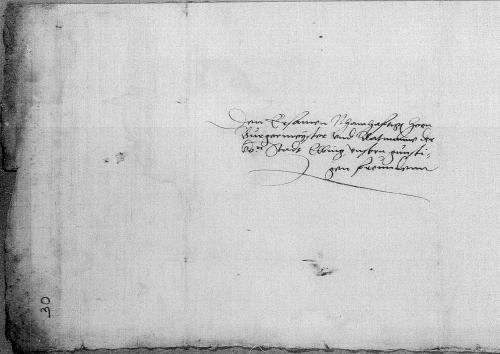 Den Ersamen Nhamhafften Hern
Burgermeyster und Ratmanne der
Stadt Elbing unsern gunsti-
gen freunden
30